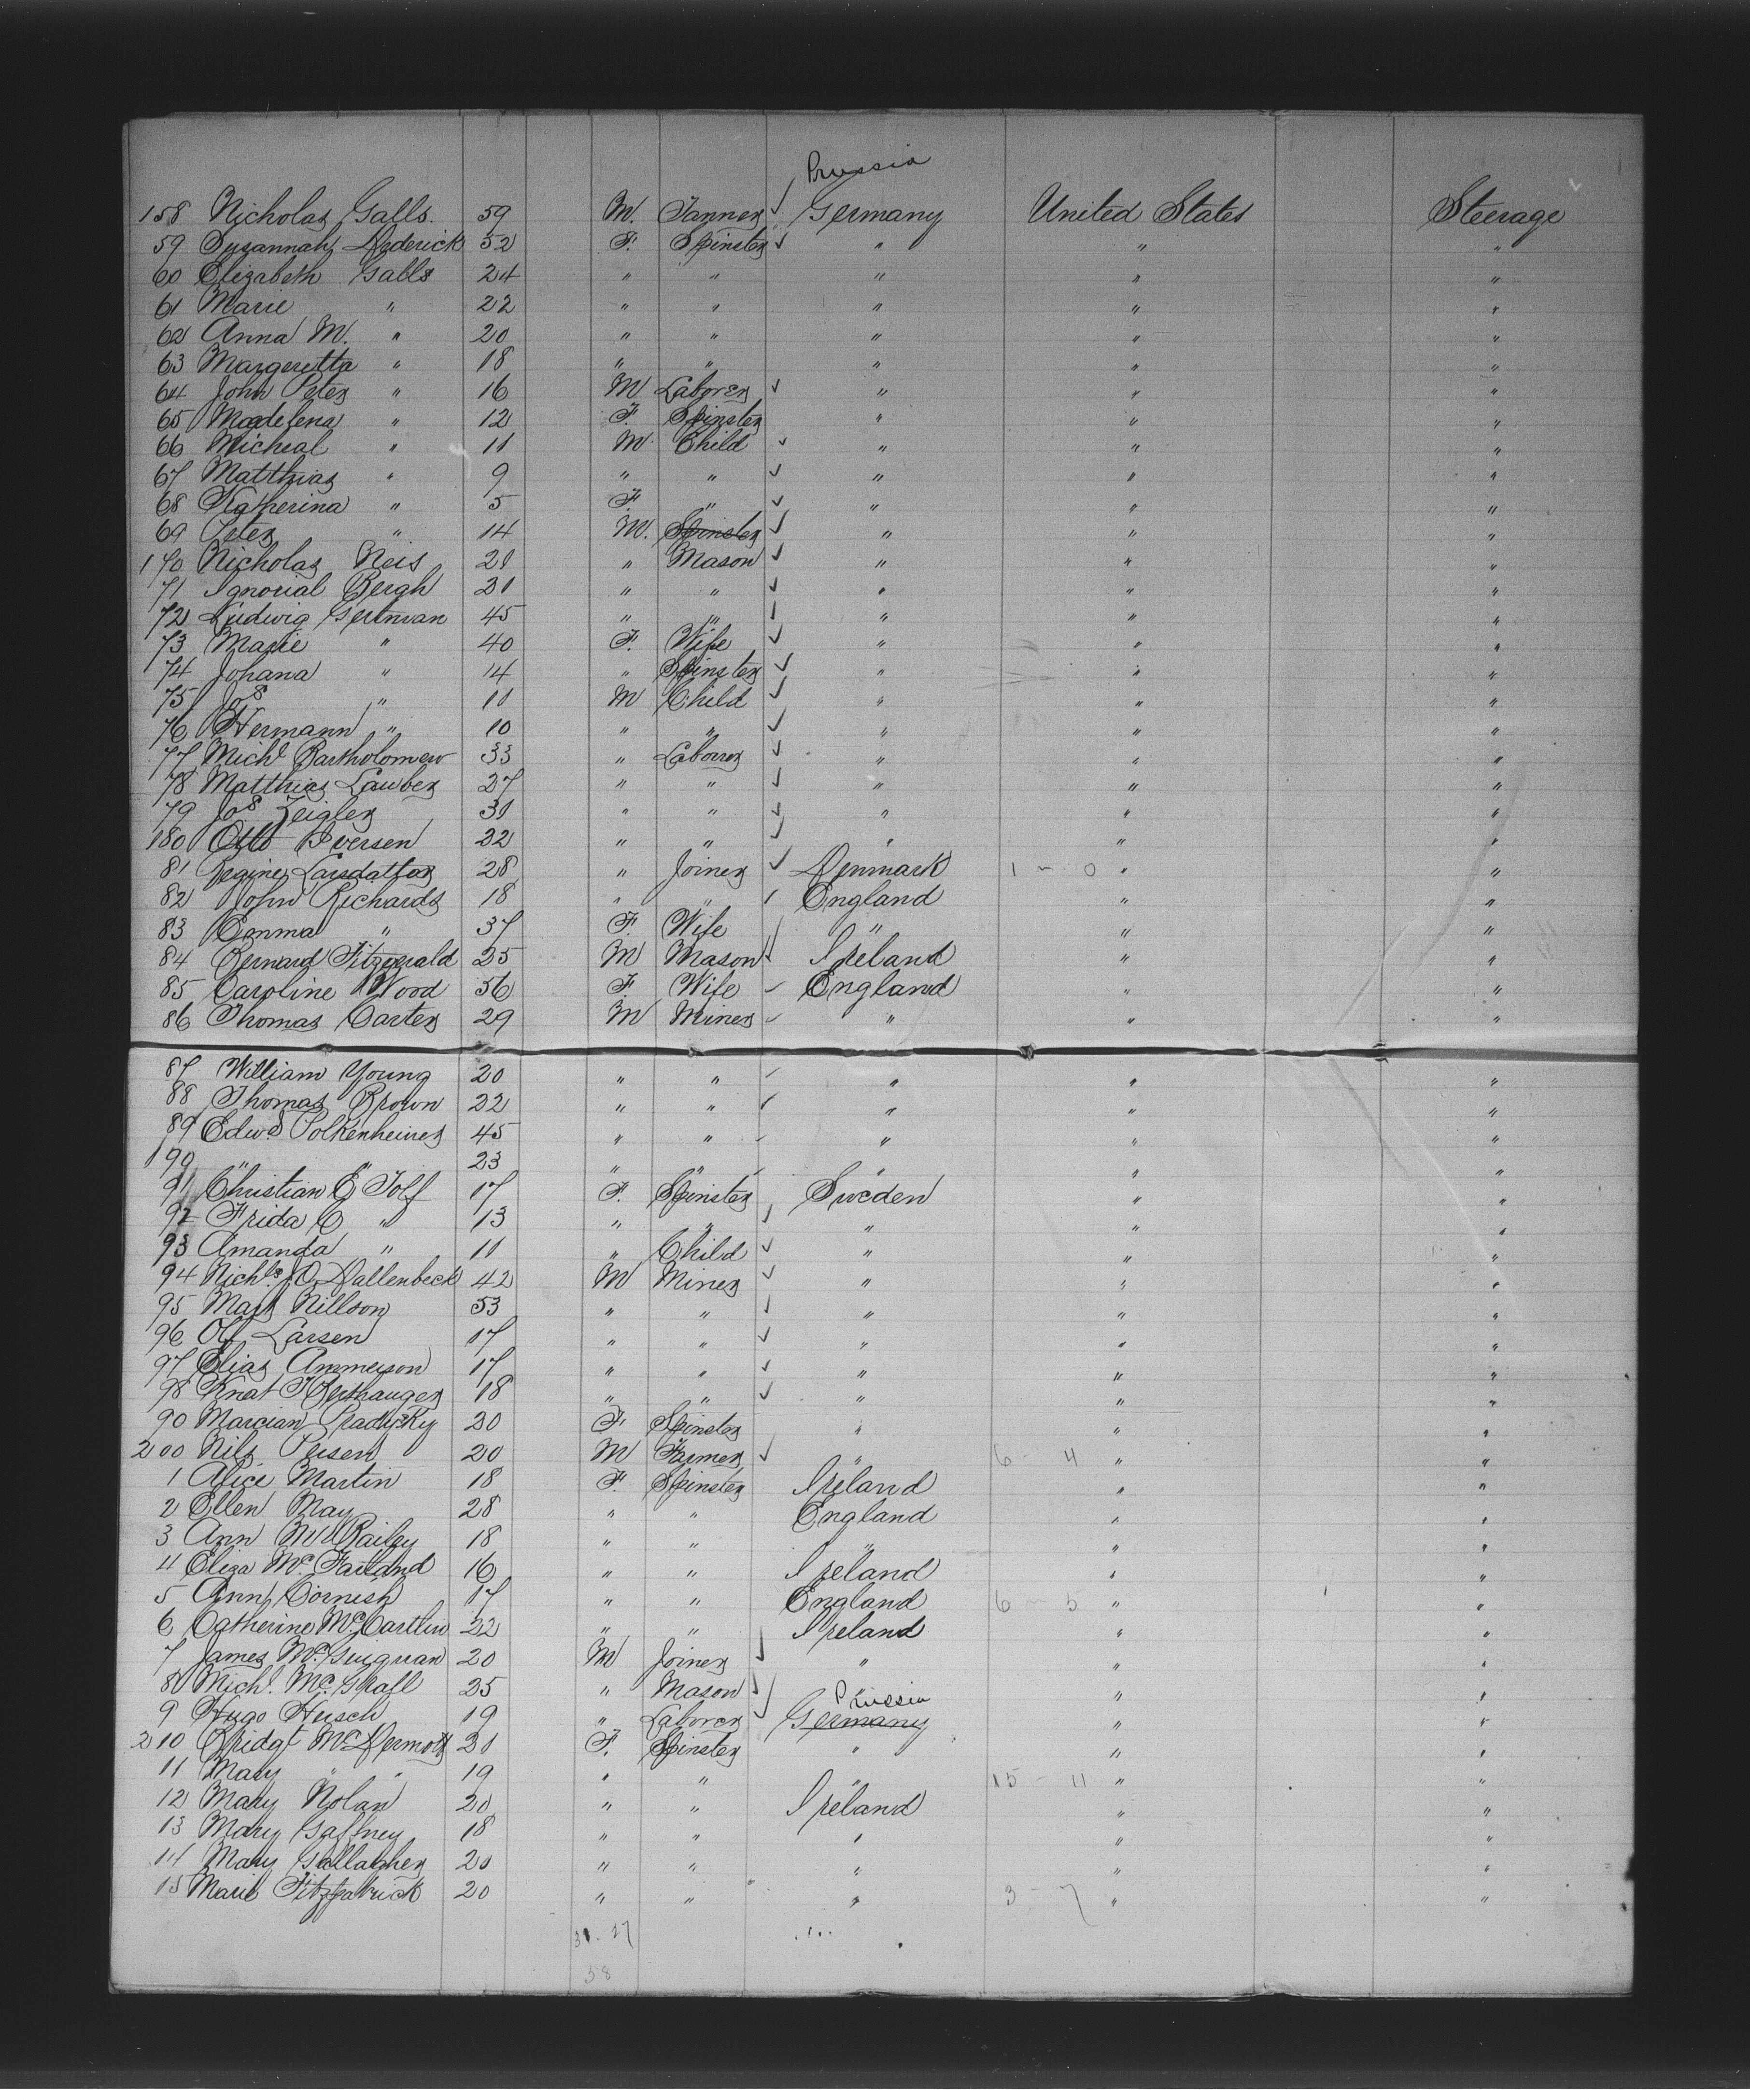 Prussia
158 Nicholas Galls. 59 M. Tanner ✓ Germany United States Steerage
59 Susannah Dederick 52 F. Spinster ✓ " " "
60 Elizabeth Galls 24 " " " " "
61 Marie " 22 " " " " "
62 Anna M. " 20 " " " " "
63 Margeretta " 18 " " " " "
64 John Peter " 16 M Laborer ✓ " " "
65 Madelena " 12 F. Spinster " " "
66 Micheal " 11 M. Child ✓ " " "
67 Matthias " 9 " " ✓ " " "
68 Katherina " 5 F. " ✓ " " "
69 Peter " 14 M. Spinster ✓ " " "
170 Nicholas Neis 21 " Mason ✓ " " "
71 Bergh 21 " " ✓ " " "
72 Ludwig 45 " " " " "
73 Marie " 40 F. Wife ✓ " " "
74 Johana " 14 " Spinster ✓ " " "
75 Jos " 11 M Child ✓ " " "
76 Hermann " 10 " " ✓ " " "
77 Michl Bartholomew 33 " Laborer ✓ " " "
78 Matthias Lauber 27 " " ✓ " " "
79 Jos Zeigler 31 " " ✓ " " "
180 Otto Iversen 22 " " ✓ " " "
81 Larsdatter 28 " Joiner ✓ Denmark 1 - 0 " "
82 John Richards 18 " " England " "
83 Emma " 37 F. Wife " " "
84 Bernard Fitzgerald 25 M Mason ✓ Ireland " "
85 Caroline Wood 56 F. Wife England " "
86 Thomas Carter 29 M Miner " " "
87 William Young 20 " " " " "
88 Thomas Brown 22 " " " " "
89 Edwd 45 " " " " "
190 " " 23 " " " " "
91 Christian E Tolf 17 F. Spinster Sweden " "
92 Frida C " 13 " " ✓ " " "
93 Amanda " 11 " Child ✓ " " "
94 Nichls J O Dallenbeck 42 M Miner ✓ " " "
95 Nillson 53 " " ✓ " " "
96 Olf Larsen 17 " " ✓ " " "
97 Elias 17 " " ✓ " " "
98 Knat 18 " " ✓ " " "
90 Marcian 20 F. Spinster " " "
200 Nils 20 M Farmer ✓ " 6 - 4 " "
1 Alice Martin 18 F. Spinster Ireland " "
2 Ellen May 28 " " England " "
3 Ann 18 " " " " "
4 Eliza Mc Farland 16 " " Ireland " "
5 Ann Cornish 17 " " England 6 - 5 " "
6 Catherine 22 " " Ireland " "
7 James 20 M Joiner ✓ " " "
8 Michl. 25 " Mason ✓ " " "
Prussia
9 Hugo 19 " Laborer ✓ Germany " "
210 Bridgt McDermott 21 F. Spinster " " "
11 Mary " " 19 " " " 15 - 11 " "
12 Mary Nolan 20 " " Ireland " "
13 Mary Gaffney 18 " " " " "
14 Mary Gallagher 21 " " " " "
15 Marie Fitzpatrick 20 " " " 3 - 7 " "
31 - 27
58